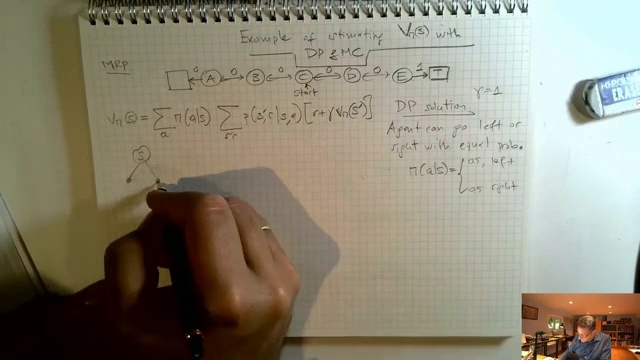 Example of estimating Vπ(s) with
DP & MC
MRP
0 0 0 0 0 1
A B C D E T
start
Vπ(s) = ∑a π(a|s) ∑s',r p(s',r|s,a) [r + γ Vπ(s')]
DP solution γ=1
Agent can go left or
right with equal prob.
π(a|s) = { 0.5, left
0.5 right
S
ERAS